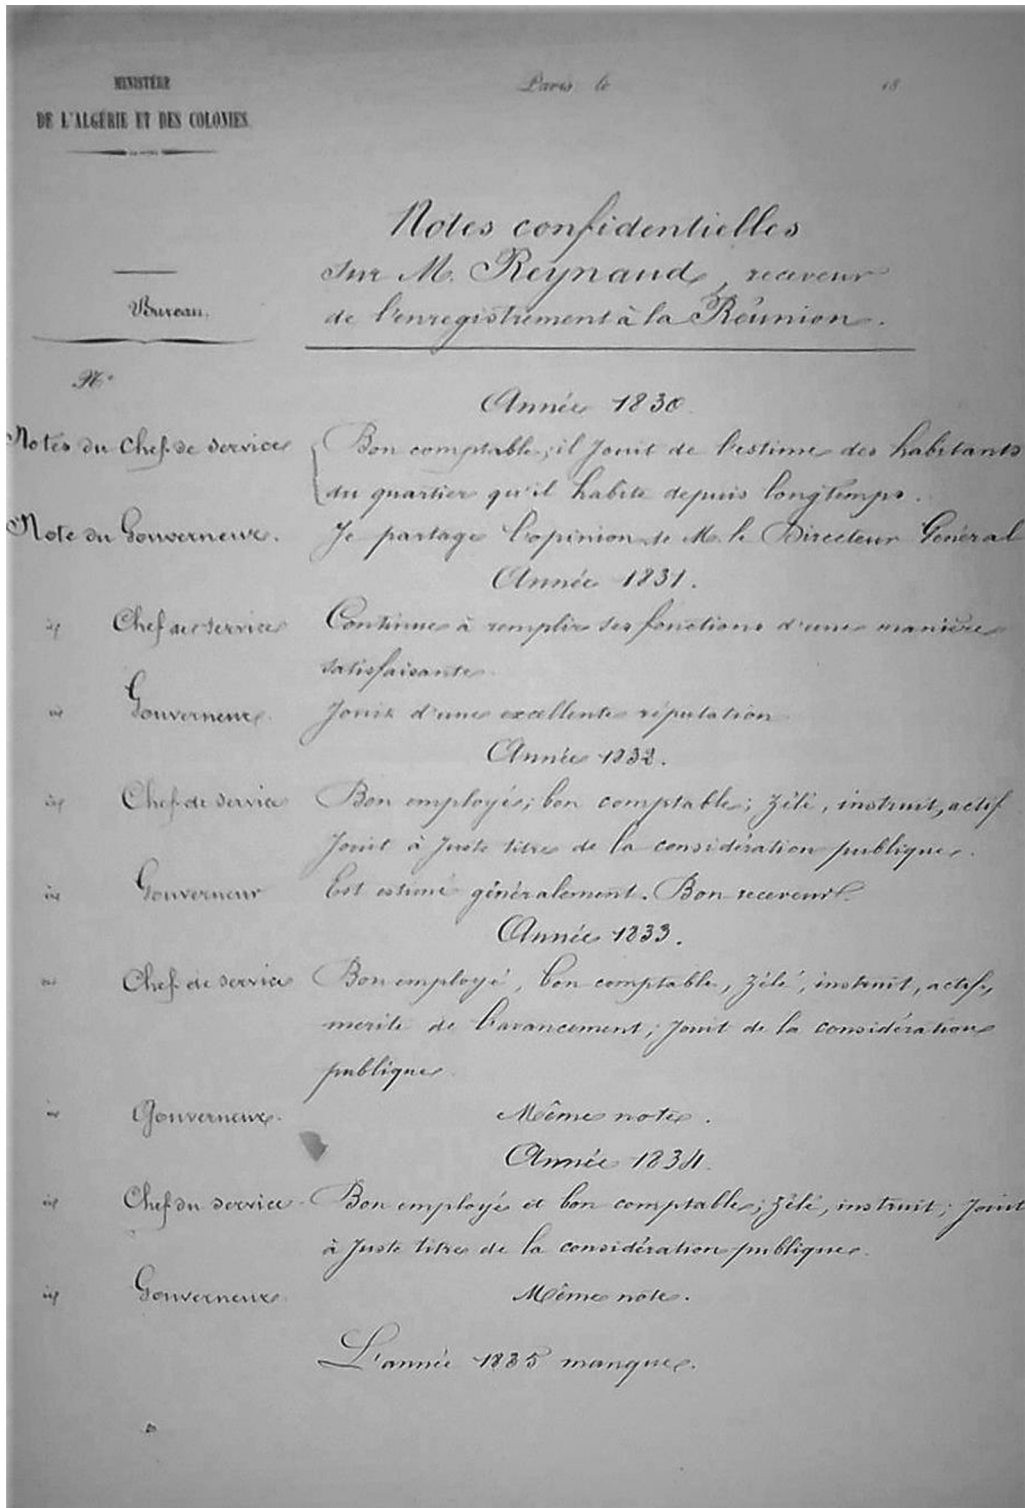 MINISTÈRE
DE L'ALGÉRIE ET DES COLONIES.
Paris le 18
Notes confidentielles
Sur M. Reynaud, receveur
de l'enregistrement à la Réunion.
Bureau.
N°
Année 1830.
Notes du Chef de service Bon comptable, il Jouit de l'estime des habitants
du quartier qu'il habite depuis longtemps.
Note du Gouverneur. Je partage l'opinion de M. le Directeur Général
Année 1831.
Chef de service Continue à remplir ses fonctions d'une manière
satisfaisante.
Gouverneur. Jouit d'une excellente réputation
Année 1832.
Chef de service Bon employé; bon comptable; zélé, instruit, actif
Jouit à Juste titre de la considération publique.
Gouverneur Est estimé généralement. Bon receveur.
Année 1833.
Chef de service Bon employé, bon comptable, zélé, instruit, actif,
merite de l'avancement; Jouit de la considération
publique.
Gouverneur. Même note.
Année 1834.
Chef du service Bon employé et bon comptable; zélé, instruit; Jouit
à Juste titre de la considération publique.
Gouverneur Même note.
L'année 1835 manque.